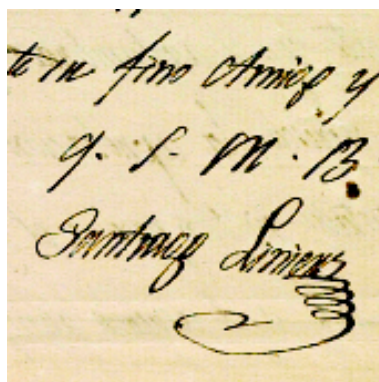 te su fino Amigo y
q. S. M. B.
Santiago Liniers